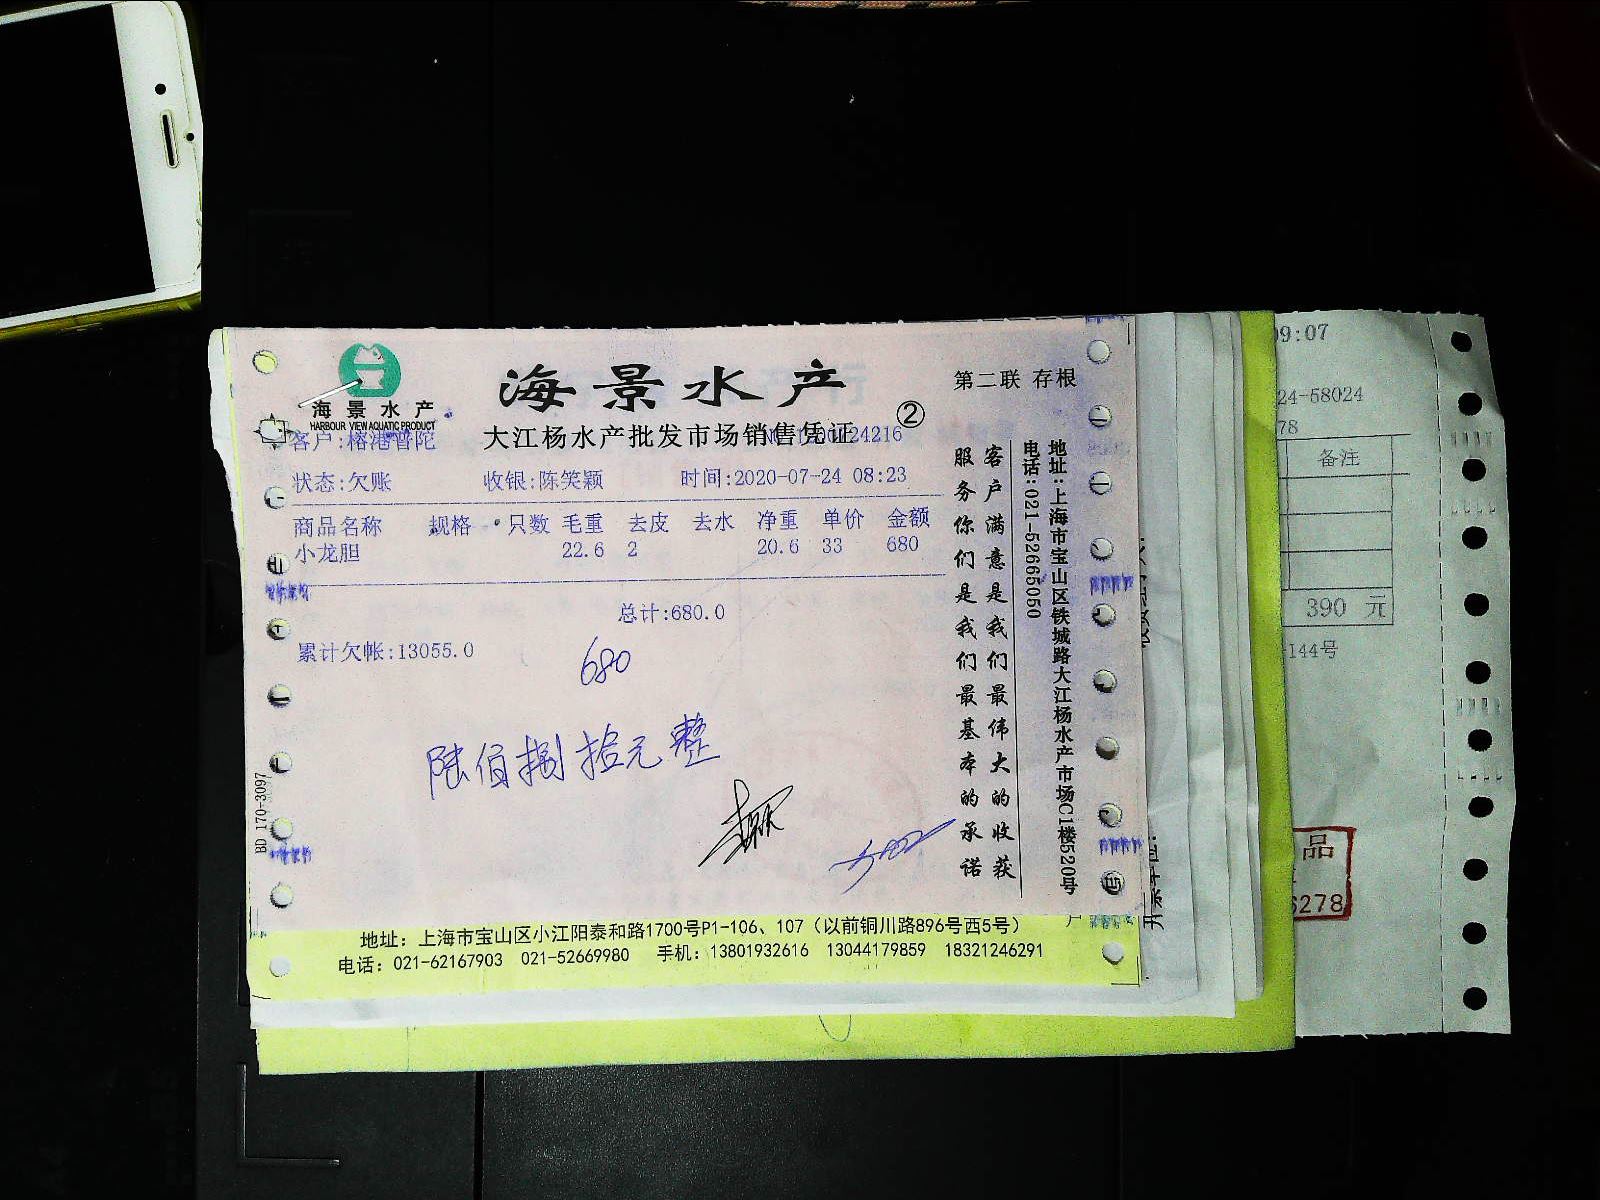 海景水产
HARBOUR VIEW AQUATIC PRODUCT
海景水产
第二联 存根
②
大江杨水产批发市场销售凭证
客户:榕港普陀
24216
状态:欠账 收银:陈笑颖 时间:2020-07-24 08:23
商品名称 规格 只数 毛重 去皮 去水 净重 单价 金额
小龙胆 22.6 2 20.6 33 680
总计:680.0
累计欠帐:13055.0
680
陆佰捌拾元整
客户满意是我们最伟大的收获
服务你们是我们最基本的承诺
地址:上海市宝山区铁城路大江杨水产市场C1楼520号
电话:021-52665050
BD 170-3097
地址：上海市宝山区小江阳泰和路1700号P1-106、107（以前铜川路896号西5号）
电话：021-62167903 021-52669980 手机：13801932616 13044179859 18321246291
09:07
24-58024
78
备注
390 元
-144号
品
6278